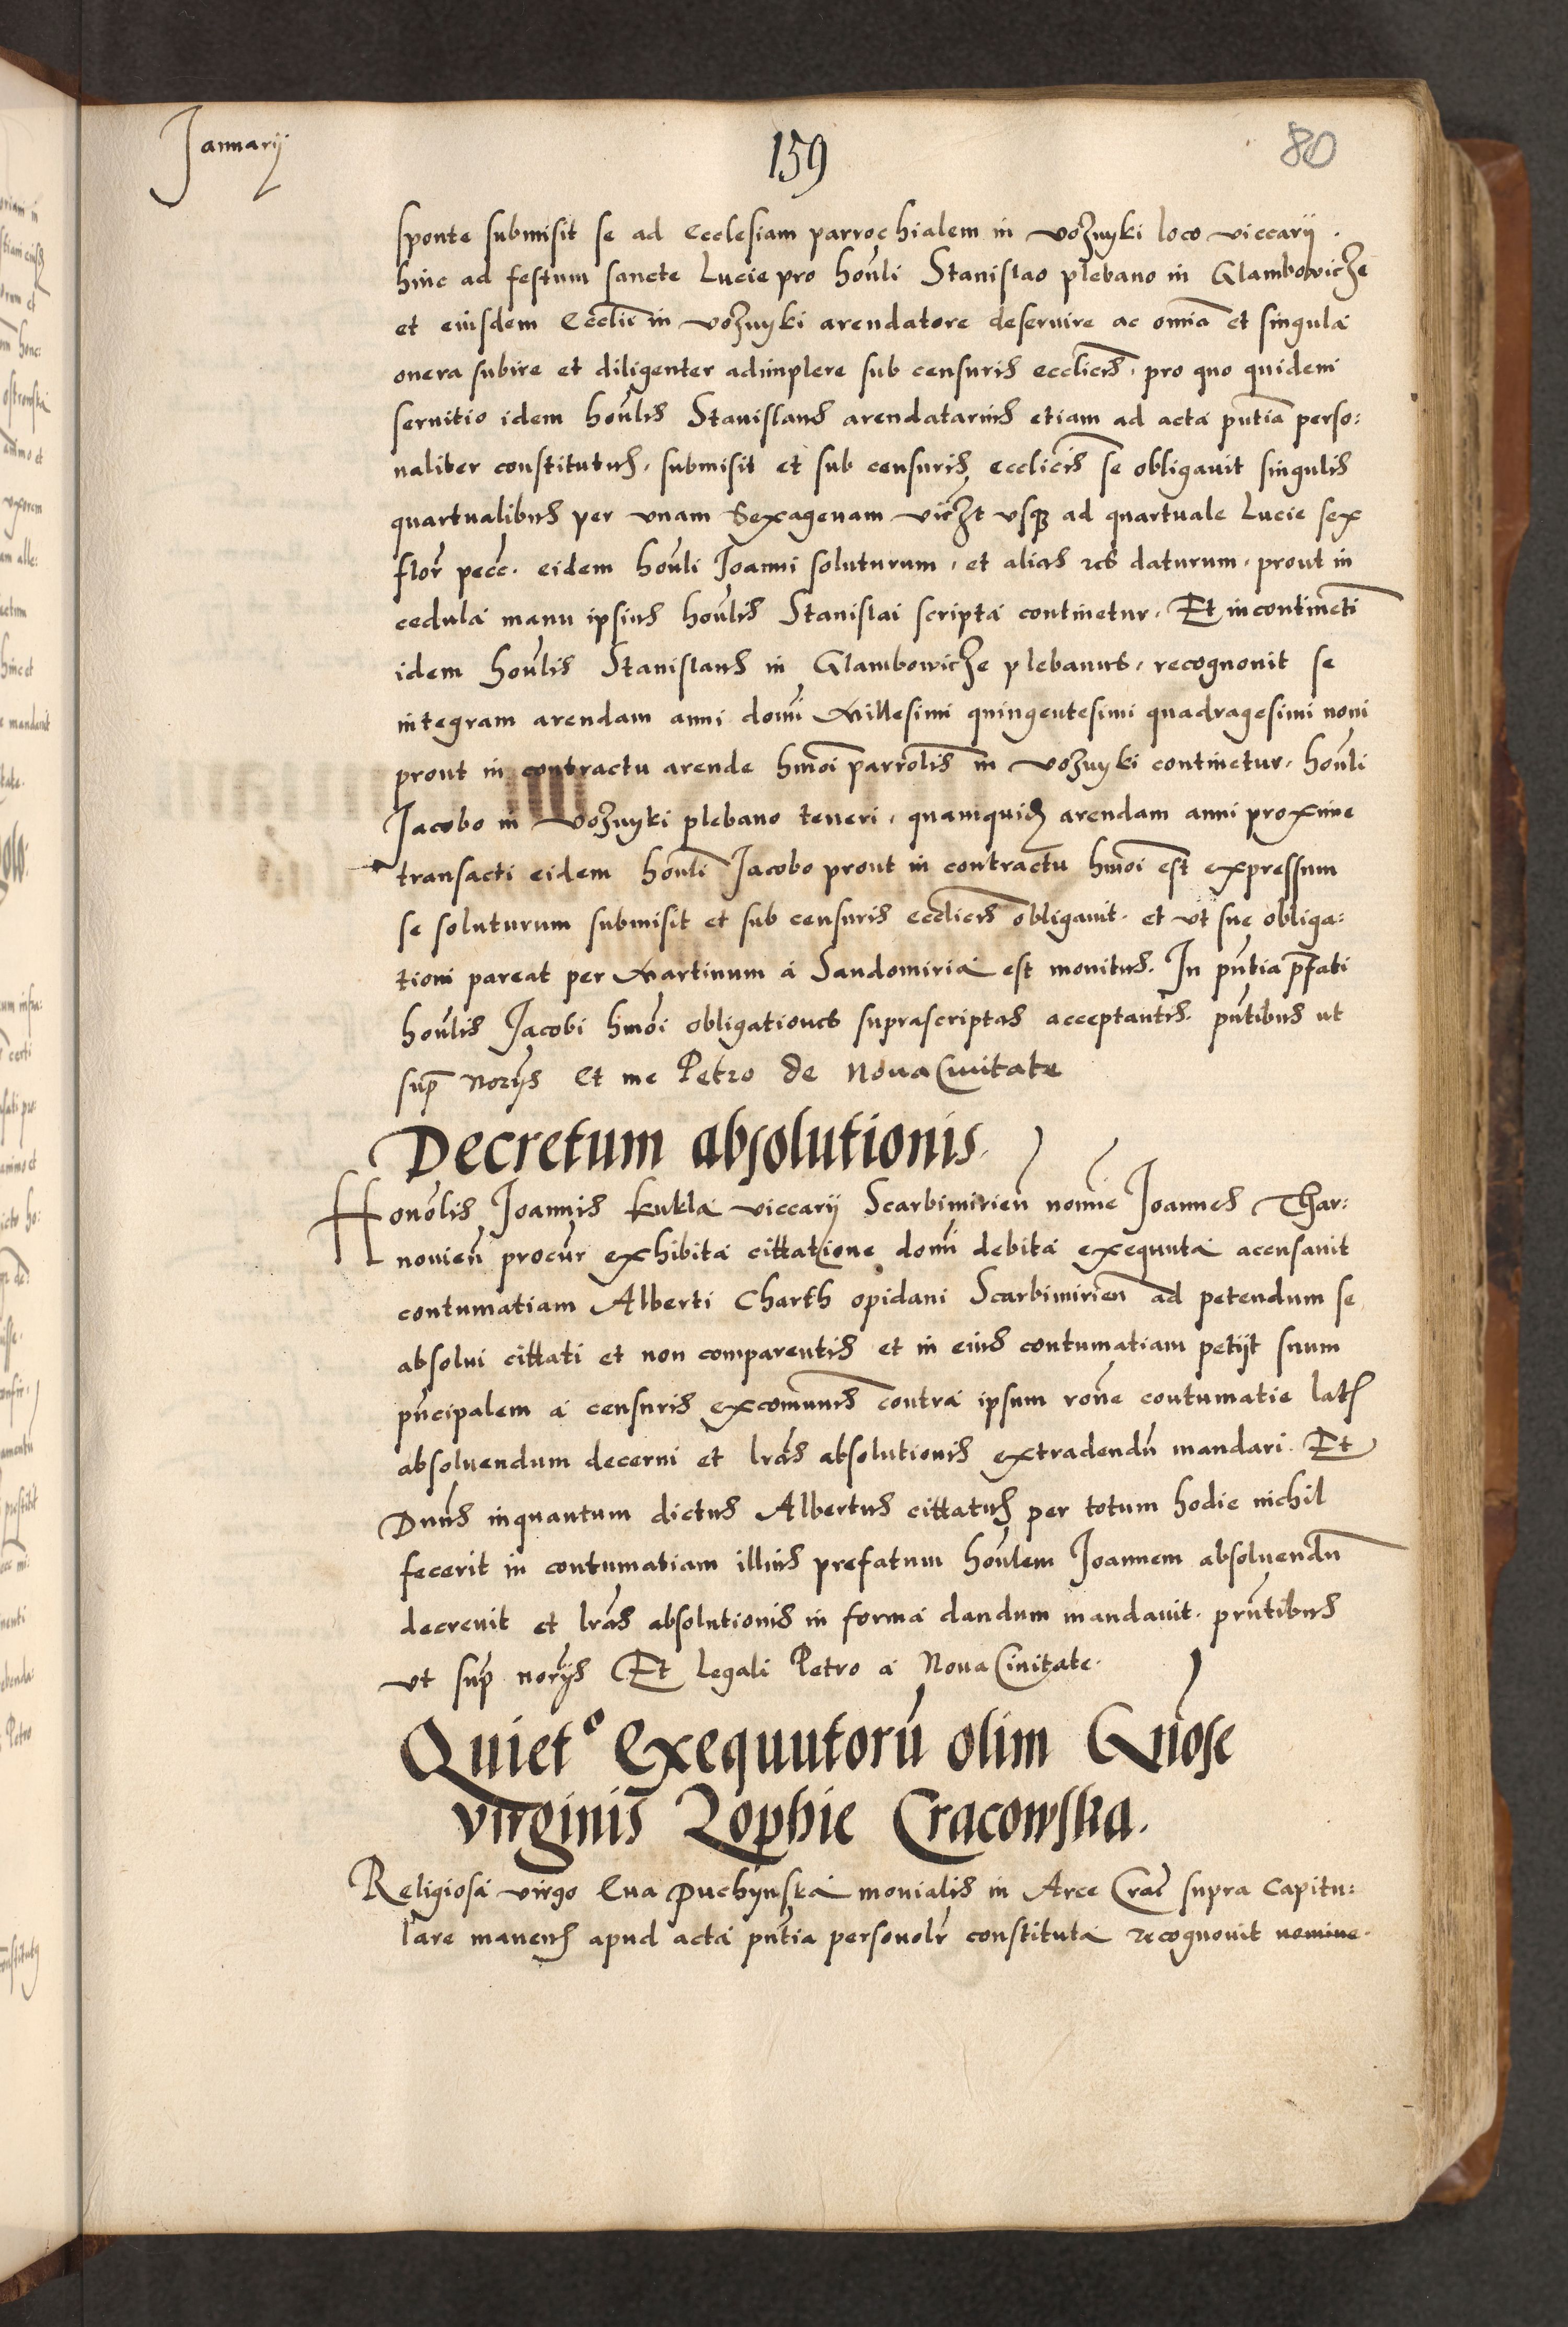 Januarij
159
80
sponte submisit se ad Ecclesiam parrochialem in voznyki loco viccarij.
hinc ad festum sancte Lucie pro houli Stanislao plebano in Glambowicze
et eiusdem Ecclie in voznyki arendatore deseruire ac omia et singula
onera subire et diligenter adimplere sub censuris ecclicis. pro quo quidem
seruitio idem houlis Stanislaus arendatarius etiam ad acta pntia perso:
naliter constitutus, submisit et sub censuris ecclicis se obligauit singulis
quartualibus per vnam Sexagenam viczt vsq ad quartuale Lucie sex
flor pecc. eidem houli Joanni soluturum, et alias res daturum, prout in
cedula manu ipsius houlis Stanislai scripta continetur. Et incontineti
idem houlis Stanislaus in Glambowicze plebanus, recognouit se
integram arendam anni domi Millesimi quingentesimi quadragesimi noni
prout in contractu arende hmoi parrolis in voznyki continetur, houli
Jacobo in voznyki plebano teneri, quamquid arendam anni proxime
transacti eidem houli Jacobo prout in contractu hmoi est expressum
se soluturum submisit et sub censuris ecclicis obligauit. et vt sue obliga:
tioni pareat per Martinum a Sandomiria est monitus. In pntia pfati
houlis Jacobi hmoi obligationes suprascriptas acceptantis. pntibus ut
sup norijs et me Petro de Noua Ciuitate
Decretum absolutionis.
Honolis Joannis kukla viccarij Scarbimirien nomine Joannes Thar:
nouien procur exhibita cittatione domi debita exequuta acensauit
contumatiam Alberti Charth opidani Scarbimirien ad petendum se
absolui cittati et non comparentis et in eius contumatiam petijt suum
pncipalem a censuris excomunis contra ipsum rone contumatie lats
absoluendum decerni et lras absolutionis extradendu mandari. Et
Dnus inquantum dictus Albertus cittatus per totum hodie nichil
fecerit in contumatiam illius prefatum houlem Joannem absoluendu
decreuit et lras absolutionis in forma dandum mandauit. prntibus
vt sup norijs Et legali Petro a Noua Ciuitate.
Quieto Exequutoru olim Gnose
virginis Zophie Cracowska.
Religiosa virgo Eua Puchynska monialis in Arce Crac supra Capitu:
lare manens apud acta pntia personolr constituta recognouit nomine.